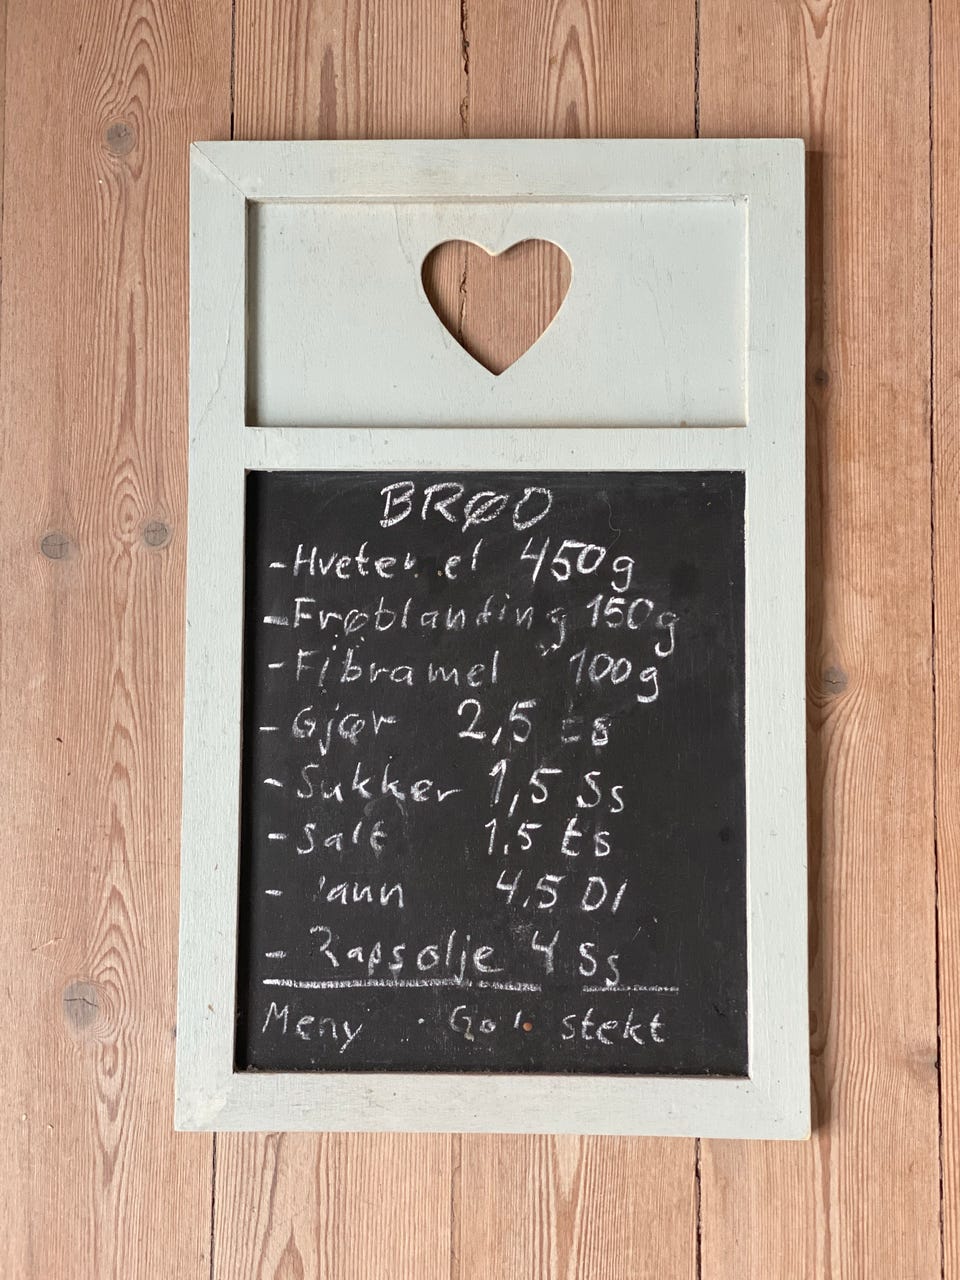 BRØD
- 450g
- Frøblanding 150g
- Fibramel 100g
- Gjær 2,5 ts
- Sukker 1,5 Ss
- Salt 1,5 ts
- 4,5 Dl
- Rapsolje 4 Ss
Meny stekt